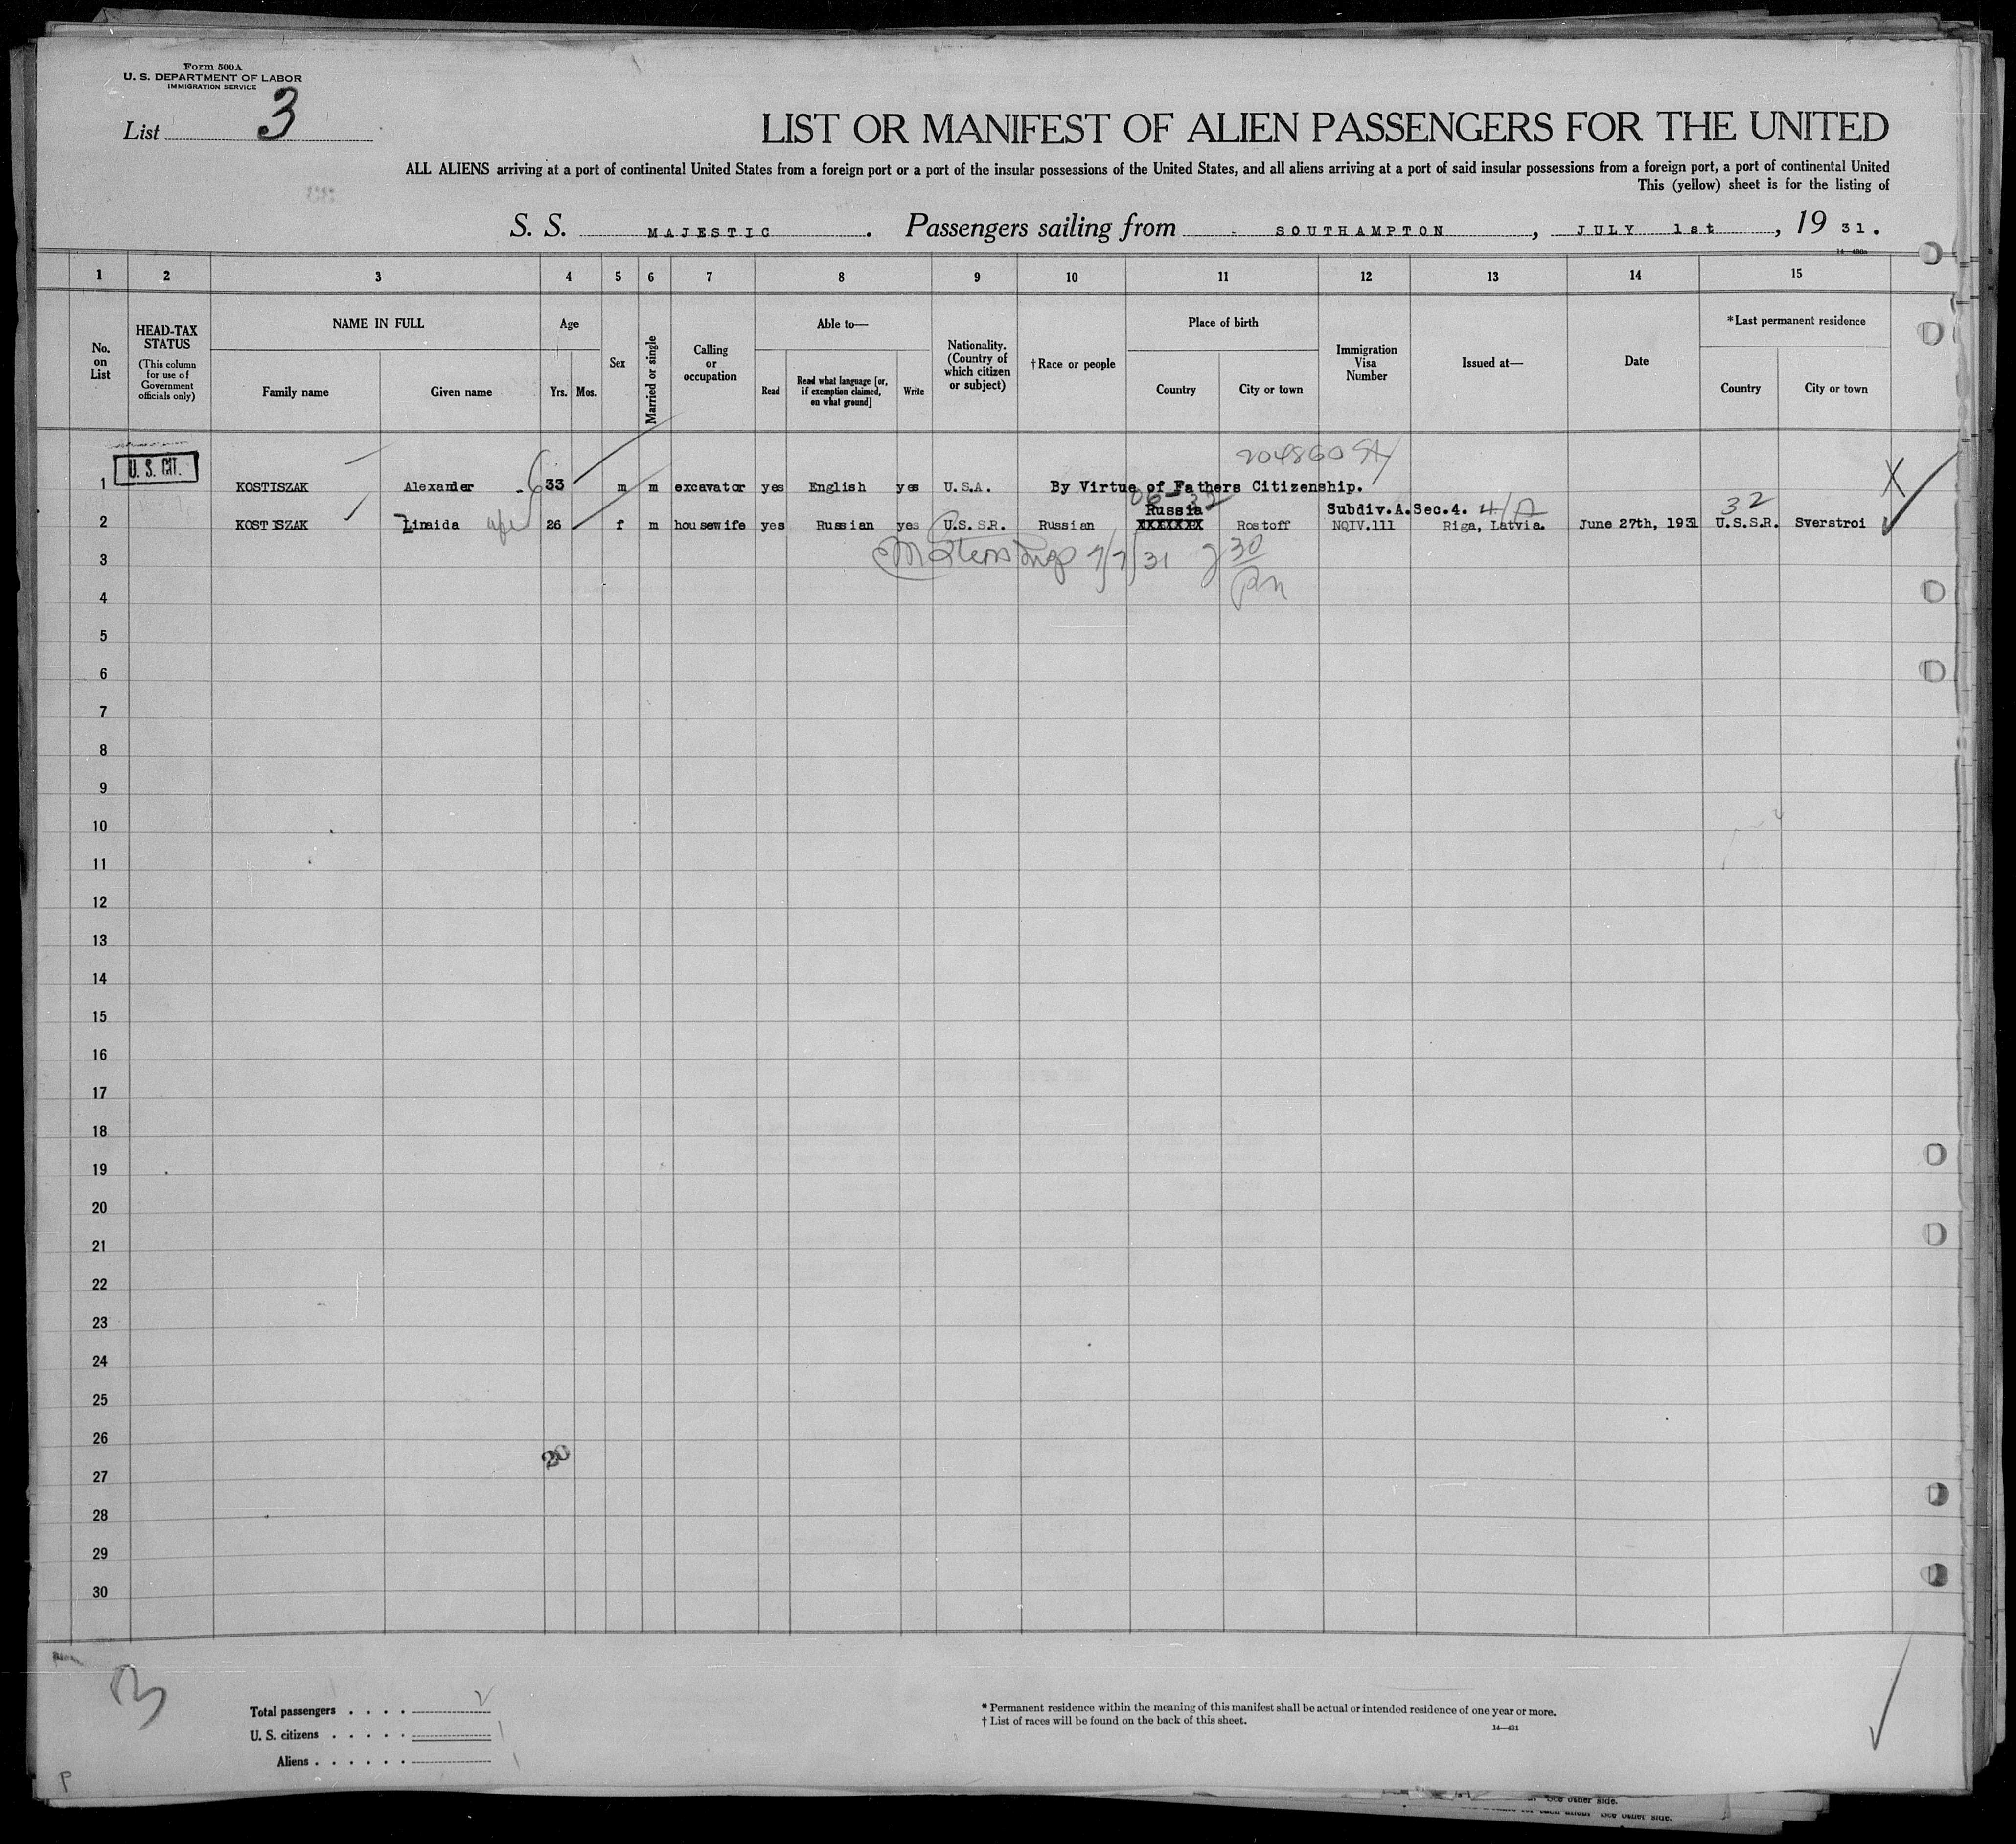 Form 500A
U. S. DEPARTMENT OF LABOR
IMMIGRATION SERVICE
List 3
LIST OR MANIFEST OF ALIEN PASSENGERS FOR THE UNITED
ALL ALIENS arriving at a port of continental United States from a foreign port or a port of the insular possessions of the United States, and all aliens arriving at a port of said insular possessions from a foreign port, a port of continental United
This (yellow) sheet is for the listing of
S. S. MAJESTIC. Passengers sailing from SOUTHAMPTON, JULY 1st, 1931.
1 2 3 4 5 6 7 8 9 10 11 12 13 14 15
No. on List
HEAD-TAX STATUS
(This column for use of Government officials only)
NAME IN FULL
Family name
Given name
Age
Yrs.
Mos.
Sex
Married or single
Calling or occupation
Able to—
Read
Read what language [or, if exemption claimed, on what ground]
Write
Nationality. (Country of which citizen or subject)
†Race or people
Place of birth
Country
City or town
Immigration Visa Number
Issued at—
Date
*Last permanent residence
Country
City or town
204860
U. S. CIT.
1 KOSTISZAK Alexander 33 m m excavator yes English yes U.S.A. By Virtue of Fathers Citizenship. X
06-32
Russia Subdiv.A.Sec.4. 4/A 32
2 KOSTISZAK Zinaida wife 26 f m housewife yes Russian yes U.S.S.R. Russian XXXXXXX Rostoff NQIV.111 Riga, Latvia. June 27th, 1931 U.S.S.R. Sverstroi
3 7/7/31 30
4
5
6
7
8
9
10
11
12
13
14
15
16
17
18
19
20
21
22
23
24
25
26
20
27
28
29
30
Total passengers . . . . 2
U. S. citizens . . . . . 1
Aliens . . . . . . 1
* Permanent residence within the meaning of this manifest shall be actual or intended residence of one year or more.
† List of races will be found on the back of this sheet.
14—431
P
See other side.
See other side.